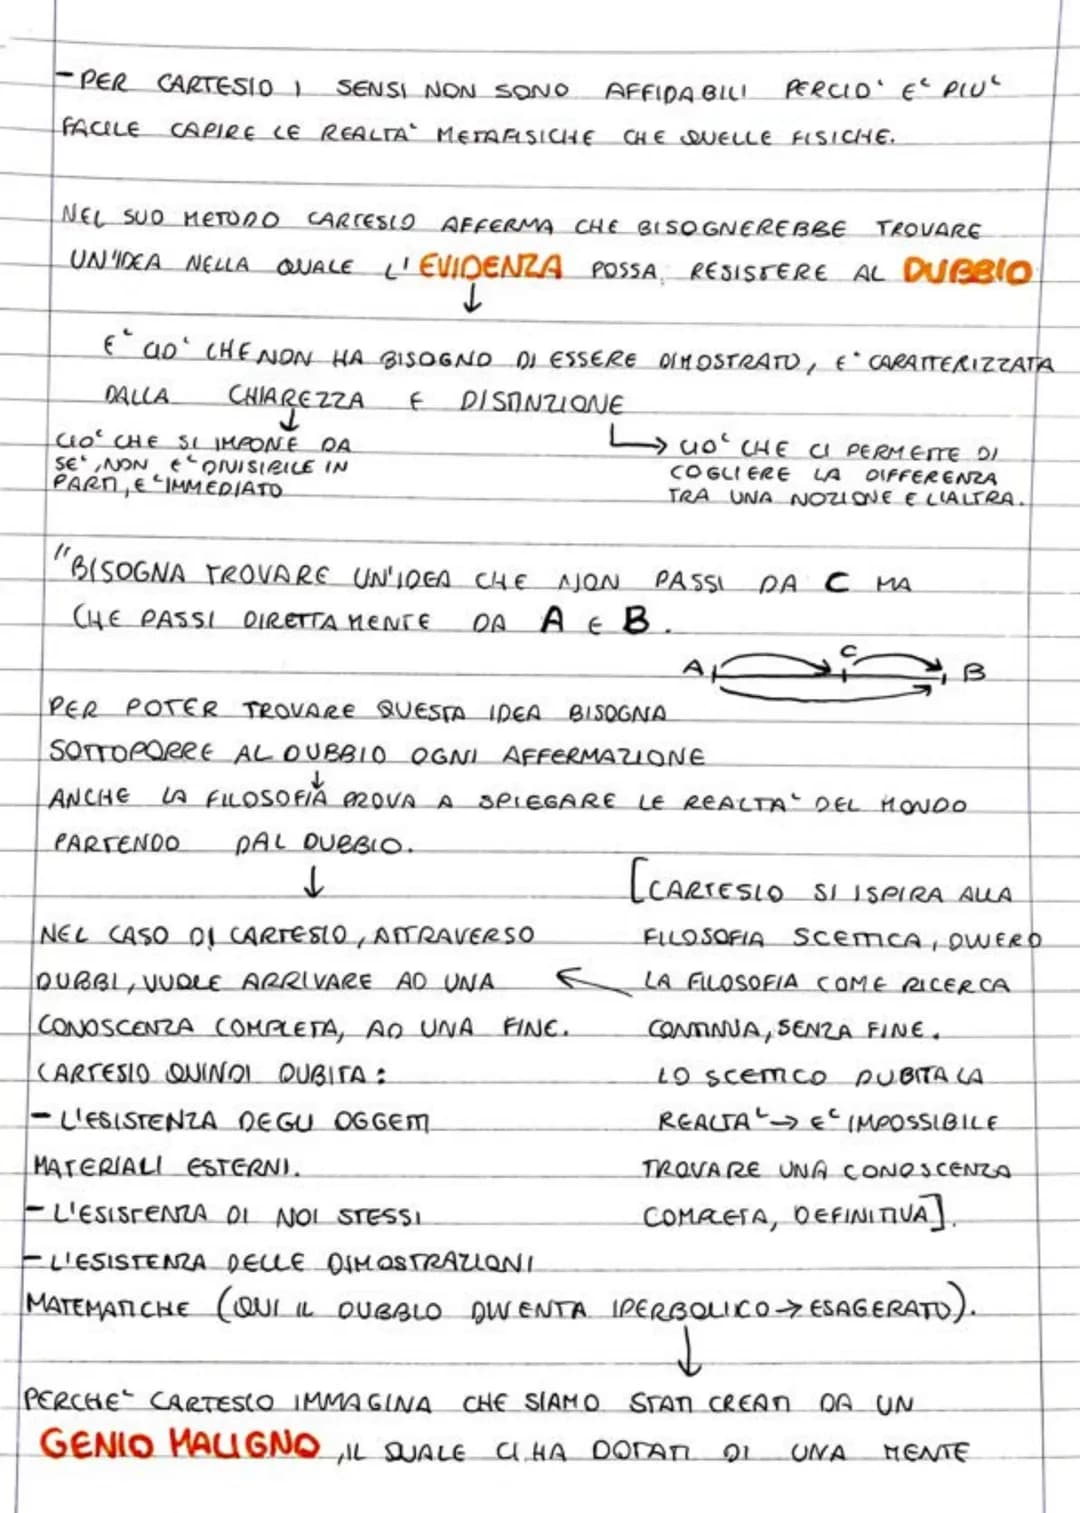 - PER CARTESIO I SENSI NON SONO AFFIDABILI PERCIO' E' PIU'
FACILE CAPIRE LE REALTA' METAFISICHE CHE QUELLE FISICHE.
NEL SUO METODO CARTESIO AFFERMA CHE BISOGNEREBBE TROVARE
UN'IDEA NELLA QUALE L'EVIDENZA POSSA RESISTERE AL DUBBIO
↓
E' CIO' CHE NON HA BISOGNO DI ESSERE DIMOSTRATO, E' CARATTERIZZATA
DALLA CHIAREZZA E DISTINZIONE
↓
CIO' CHE SI IMPONE DA
SE', NON E' DIVISIBILE IN
PARTI, E' IMMEDIATO
→ CIO' CHE CI PERMETTE DI
COGLIERE LA DIFFERENZA
TRA UNA NOZIONE E L'ALTRA.
"BISOGNA TROVARE UN'IDEA CHE NON PASSI DA C MA
CHE PASSI DIRETTAMENTE DA A E B.
A C B
PER POTER TROVARE QUESTA IDEA BISOGNA
SOTTOPORRE AL DUBBIO OGNI AFFERMAZIONE
↓
ANCHE LA FILOSOFIA PROVA A SPIEGARE LE REALTA' DEL MONDO
PARTENDO DAL DUBBIO.
↓
NEL CASO DI CARTESIO, ATTRAVERSO
DUBBI, VUOLE ARRIVARE AD UNA
CONOSCENZA COMPLETA, AD UNA FINE.
CARTESIO QUINDI DUBITA:
- L'ESISTENZA DEGLI OGGETTI
MATERIALI ESTERNI.
- L'ESISTENZA DI NOI STESSI
- L'ESISTENZA DELLE DIMOSTRAZIONI
MATEMATICHE (QUI IL DUBBIO DIVENTA IPERBOLICO → ESAGERATO).
[CARTESIO SI ISPIRA ALLA
FILOSOFIA SCETTICA, OVVERO
← LA FILOSOFIA COME RICERCA
CONTINUA, SENZA FINE.
LO SCETTICO DUBITA LA
REALTA' → E' IMPOSSIBILE
TROVARE UNA CONOSCENZA
COMPLETA, DEFINITIVA].
↓
PERCHE' CARTESIO IMMAGINA CHE SIAMO STATI CREATI DA UN
GENIO MALIGNO, IL QUALE CI HA DOTATI DI UNA MENTE